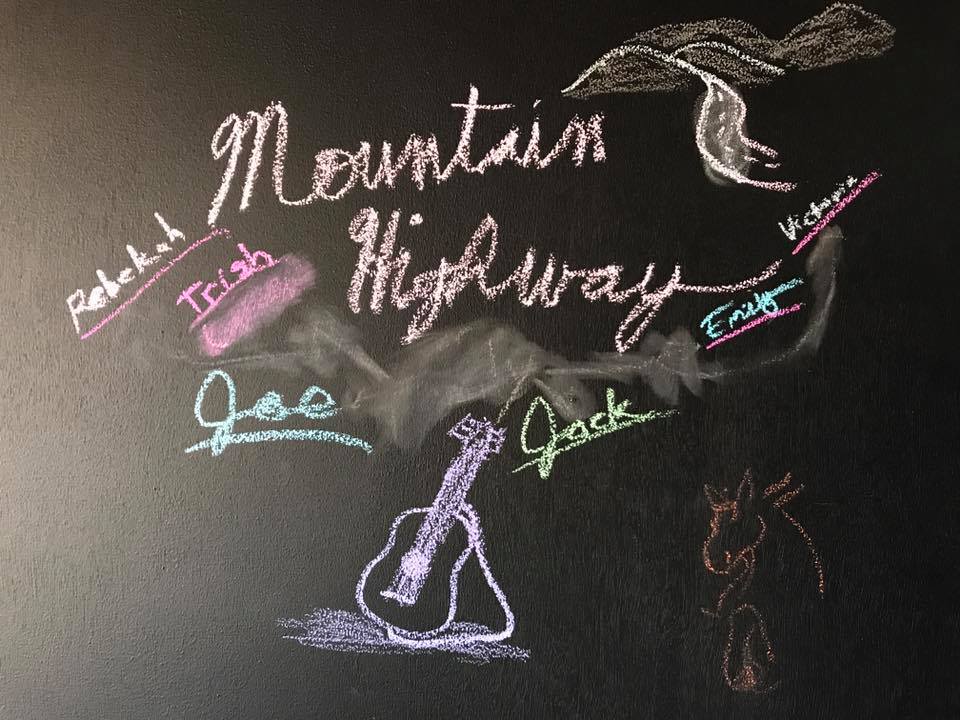 Mountain
Highway
Rebekah
Trish
Victoria
Emily
Joe
Jack